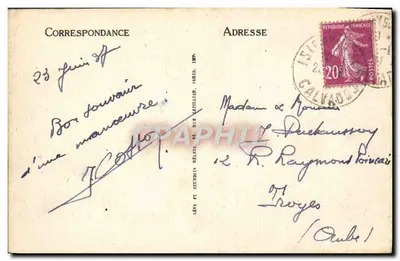 CORRESPONDANCE
ADRESSE
23 Juin 37
Bon souvenir
d'une manœuvre.
REPUBLIQUE FRANÇAISE
20c
POSTES
CALVADOS
Madame & Monsieur
12 R. Raymond Poincaré
Troyes
(Aube)
CPARAMA
LÉVY ET NEURDEIN RÉUNIS, 44, RUE LETELLIER, PARIS, IMP.